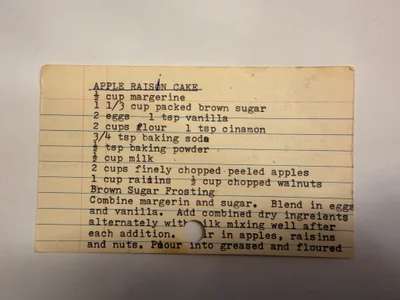 APPLE RAISIN CAKE
½ cup margerine
1 1/3 cup packed brown sugar
2 eggs 1 tsp vanilla
2 cups flour 1 tsp cinamon
3/4 tsp baking soda
½ tsp baking powder
½ cup milk
2 cups finely chopped peeled apples
1 cup raisins ½ cup chopped walnuts
Brown Sugar Frosting
Combine margerin and sugar. Blend in eggs
and vanilla. Add combined dry ingreients
alternately with milk mixing well after
each addition. ir in apples, raisins
and nuts. Pour into greased and floured